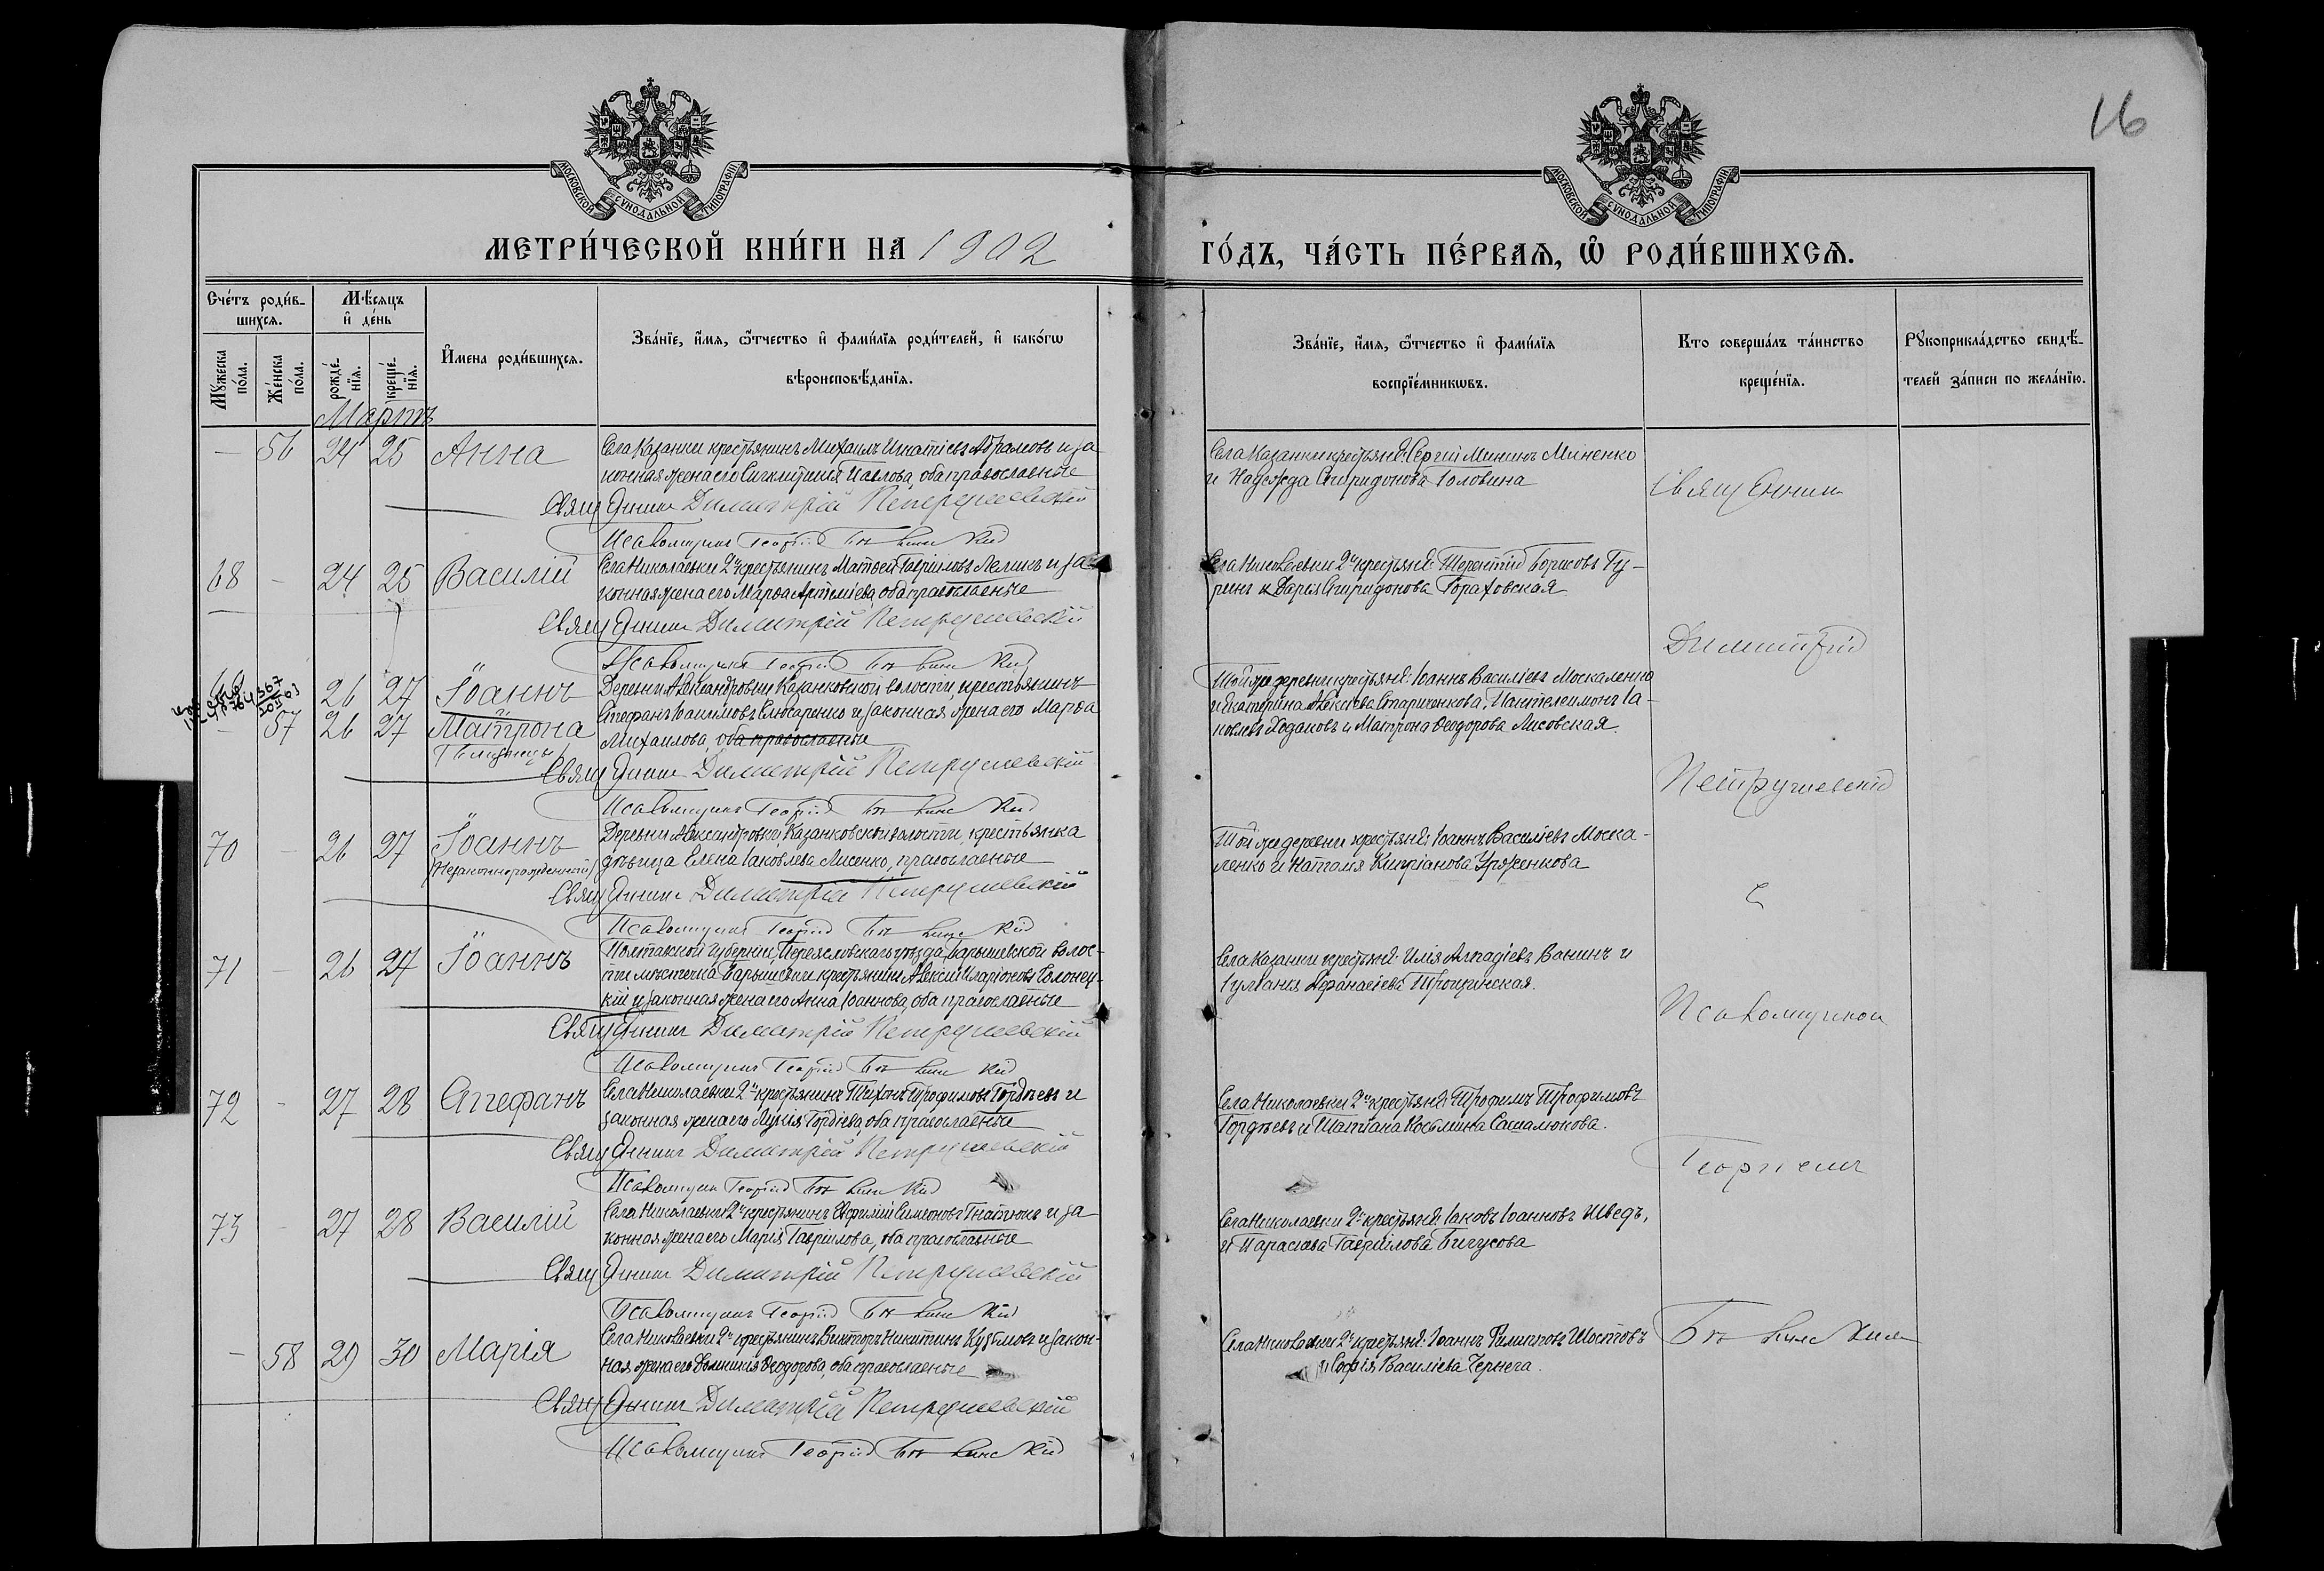 16
МОСКОВСКОЙ СУНОДАЛЬНОЙ ТИПОГРАФІИ
МОСКОВСКОЙ СУНОДАЛЬНОЙ ТИПОГРАФІИ
МЕТРИ́ЧЕСКОЙ КНИ́ГИ НА 1902
ГО́ДЪ, ЧА́СТЬ ПЕ́РВАѦ, Ѡ҆ РОДИ́ВШИХСѦ.
Сче́тъ роди́в-
шихсѧ.
Мѣ́сѧцъ
и҆ де́нь
Мꙋ́жеска
по́ла.
Же́нска
по́ла.
рожде́-
нїѧ.
креще́-
нїѧ.
И҆мена роди́вшихсѧ.
Зва́нїе, и҆́мѧ, ѻ҆́тчество и҆ фами́лїѧ роди́телей, и҆ како́гѡ
вѣроисповѣ́данїѧ.
Зва́нїе, и҆́мѧ, ѻ҆́тчество и҆ фами́лїѧ
воспрїе́мникѡвъ.
Кто соверша́лъ та́инство
креще́нїѧ.
Рꙋкоприкла́дство свидѣ́-
телей за́писи по жела́нїю.
Мартъ
— 56 24 25 Анна Села Казанки крестьянинъ Михаилъ Игнатіевъ Абрамовъ и за-
конная жена его Синклитикія Павлова, оба православные
Священникъ Димитрій Петрушевскій
Псаломщикъ Георгій
Села Казанки крестьяне: Сергій Мининъ Миненко
и Надежда Спиридонова Головина
Священникъ
68 — 24 25 Василій Села Николаевки 2й крестьянинъ Матѳей Гавріиловъ и за-
конная жена его Марѳа Артеміева, оба православные
Священникъ Димитрій Петрушевскій
Псаломщикъ Георгій
Села Николаевки 2й крестьяне: Терентій Борисовъ Гу-
ринъ и Дарія Спиридонова Гораховская
Димитрій
26 27 Іоаннъ Деревни Александровки Казанковской волости крестьянинъ
и
— 57 26 27 Матрона Стефанъ Слюсаренко и законная жена его Марѳа
(близнецы) Михаилова, оба православные
Священникъ Димитрій Петрушевскій
Псаломщикъ Георгій
Той же деревни крестьяне: Іоаннъ Василіевъ Москаленко
и Екатерина Алексіева Стариченкова, Пантелеимонъ Іа-
ковлевъ Ходаковъ и Матрона Ѳеодорова Лисовская.
Петрушевскій
70 — 26 27 Іоаннъ Деревни Александровки, Казанковской волости, крестьянка
(Незаконнорожденный) дѣвица Елена Іаковлева Лисенко, православные
Священникъ Димитрій Петрушевскій
Псаломщикъ Георгій
Той же деревни крестьяне: Іоаннъ Василіевъ Моска-
ленко и Наталія Кипріанова
съ
71 — 26 27 Іоаннъ Полтавской губерніи, Переяславскаго уѣзда, Барышевской волос-
ти мѣстечка Барышевки крестьянинъ Алексій Иларіоновъ Солонец-
кій и законная жена его Анна Іоаннова, оба православные
Священникъ Димитрій Петрушевскій
Псаломщикъ Георгій
Села Казанки крестьяне: Илія Аркадіевъ Ванинъ и
Іуліанія Аѳанасіева
Псаломщикомъ
72 — 27 28 Стефанъ Села Николаевки 2й крестьянинъ Тихонъ Трофимовъ Гордѣевъ и
законная жена его Лукія Гордіева, оба православные
Священникъ Димитрій Петрушевскій
Псаломщикъ Георгій
Села Николаевки 2й крестьяне: Трофимъ Трофимовъ
Гордѣевъ и Татіана Косьмина Сашалюкова.
Георгіемъ
73 — 27 28 Василій Села Николаевки 2й крестьянинъ Евфимій Симеоновъ Гнатюкъ и за
конная жена его Марія Гавріилова, оба православные
Священникъ Димитрій Петрушевскій
Псаломщикъ Георгій
Села Николаевки 2й крестьяне: Іаковъ Іоанновъ Шведъ,
и Параскева Гавріилова Бичусова
— 58 29 30 Марія Села Николаевки 2й крестьянинъ Викторъ Никитинъ Кузьминъ и закон-
ная жена его Домникія Ѳеодорова, оба православные
Священникъ Димитрій Петрушевскій
Псаломщикъ Георгій
Села Николаевки 2й крестьяне: Іоаннъ Филипповъ Шостовъ
и Софія Василіева Чернега.